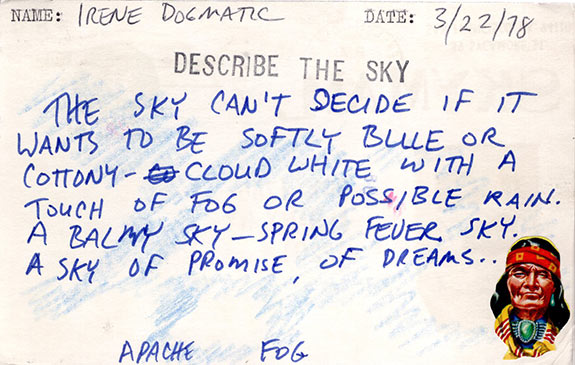 NAME: IRENE DOGMATIC DATE: 3/22/78
DESCRIBE THE SKY
THE SKY CAN'T DECIDE IF IT
WANTS TO BE SOFTLY BLUE OR
COTTONY- CLOUD WHITE WITH A
TOUCH OF FOG OR POSSIBLE RAIN.
A BALMY SKY—SPRING FEVER SKY.
A SKY OF PROMISE, OF DREAMS..
APACHE FOG